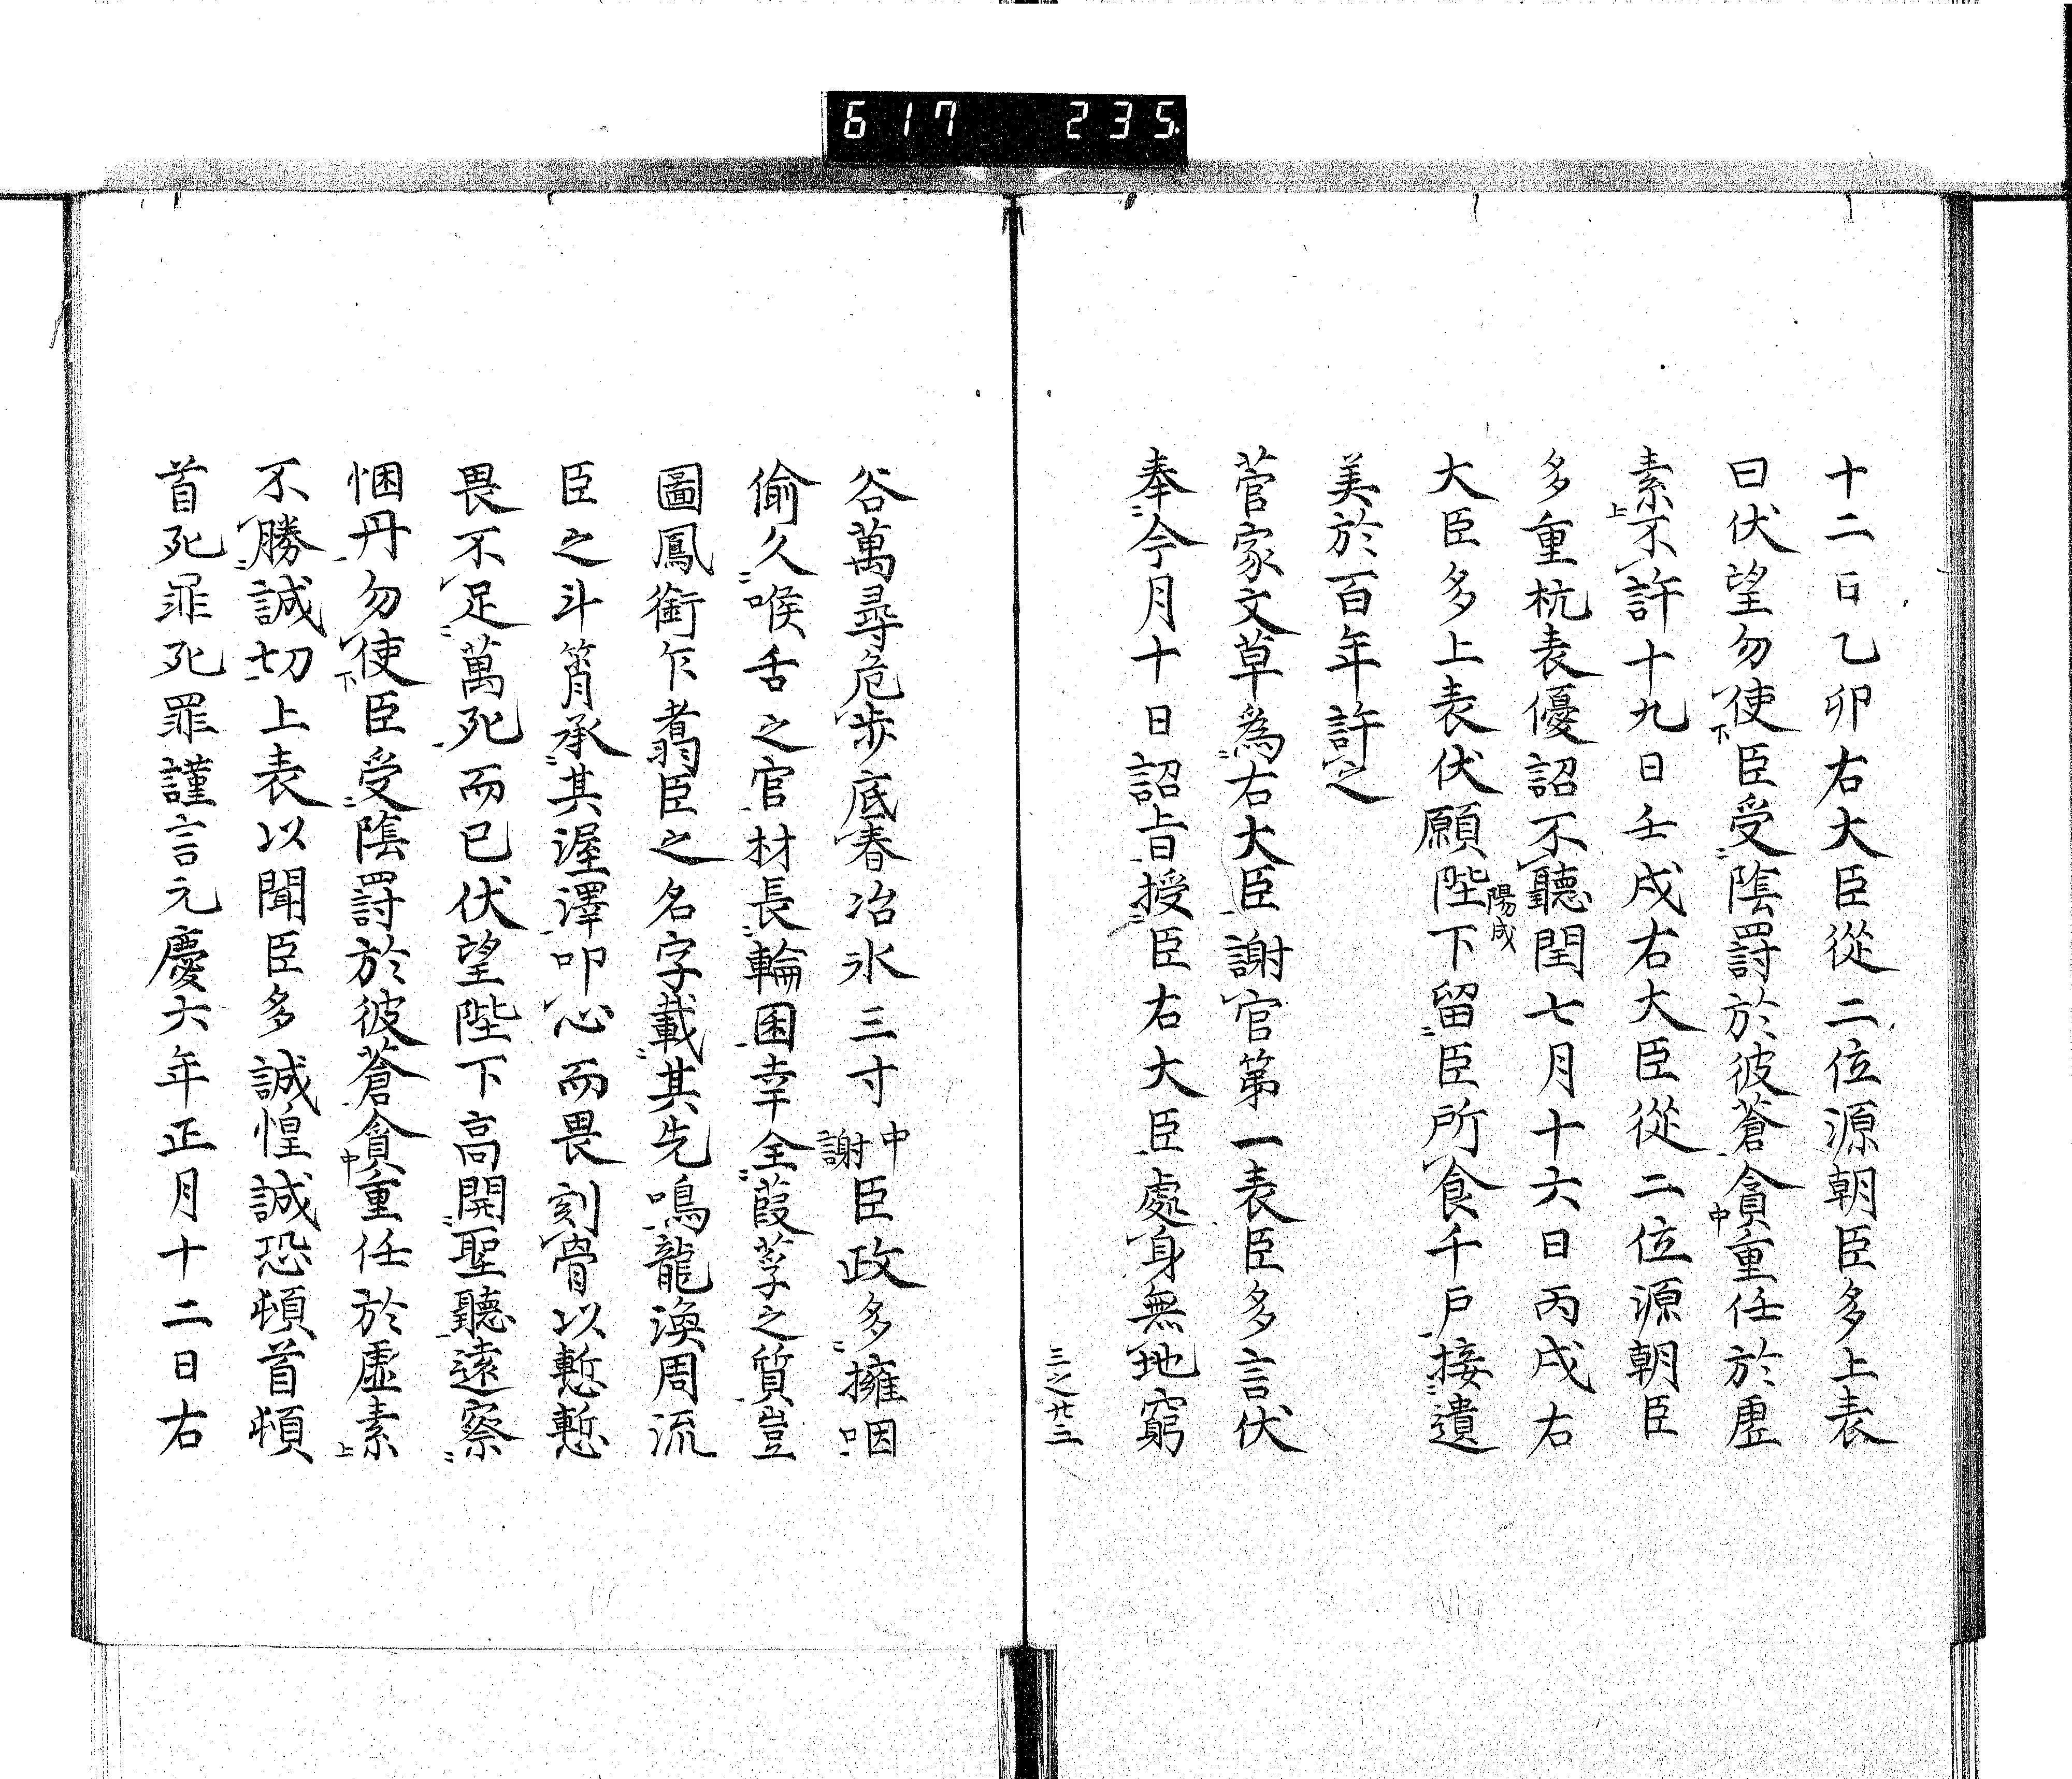 617 235
十二日乙卯右大臣從二位源朝臣多上表
曰伏望勿使臣受陰罸於彼蒼貪重任於虛
素不許十九日壬戌右大臣從二位源朝臣
多重抗表優詔不聽閏七月十六日丙戌右
大臣多上表伏願陛下留臣所食千戶接遺
美於百年許之
菅家文草為右大臣謝官第一表臣多言伏
奉今月十日詔旨授臣右大臣處身無地窮
三之廿二
谷萬尋危步底春冶氷三寸中謝臣政多擁咽
偷久喉舌之官材長輪囷幸全葭莩之質豈
圖鳳銜乍翥臣之名字載其先鳴龍渙周流
臣之斗筲承其渥澤叩心而畏刻骨以慙慙
畏不足萬死而已伏望陛下高開聖聽遠察
悃丹勿使臣受陰罸於彼蒼貪重任於虛素
不勝誠切上表以聞臣多誠惶誠恐頓首頓
首死罪死罪謹言元慶六年正月十二日右